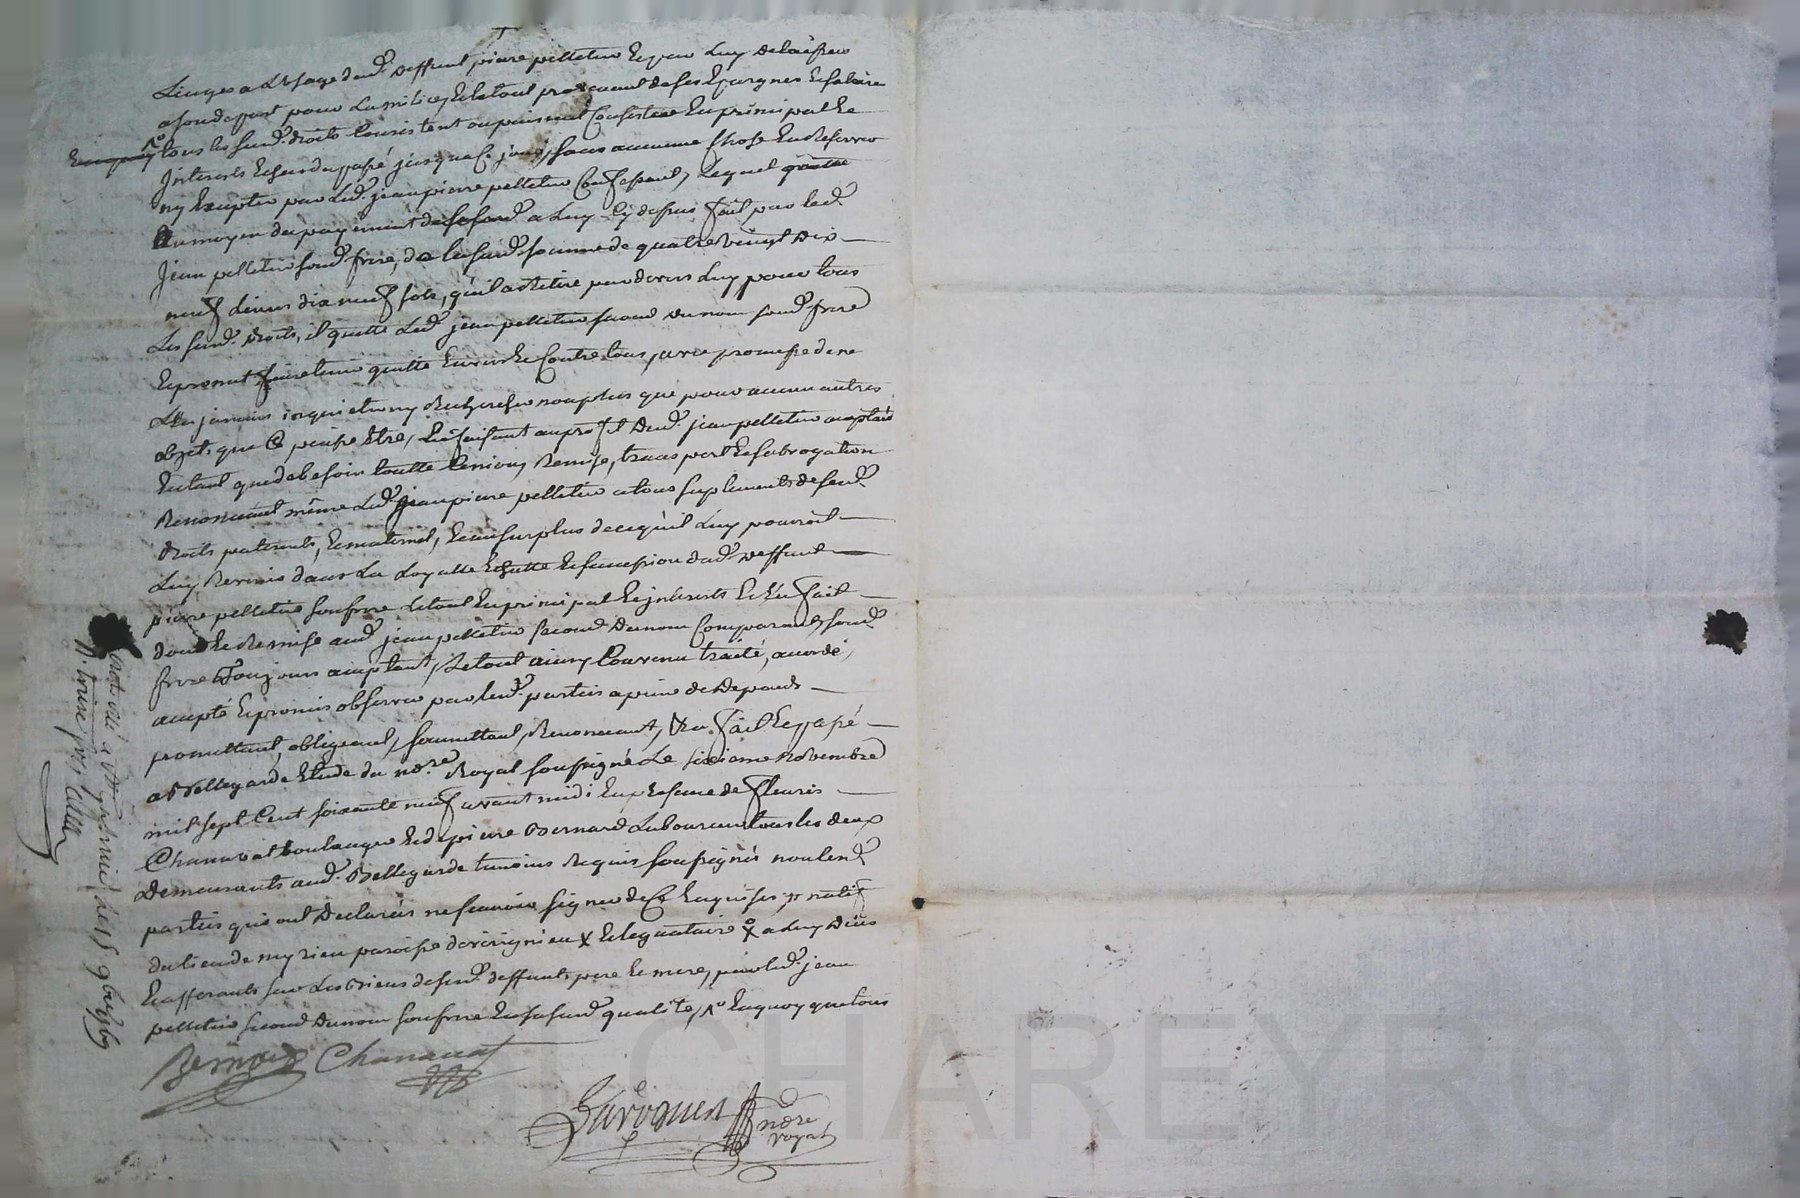 Linges a L'usage dud. deffunt pierre pelletier Et par Luy delaissés
a son depart pour La milice, Et le tout provenant de ses Epargnes Et salaire
tous les susd. droits Consistent ou puissent Consister En principal Et
Interests Echeus du passé jusques a Ce jour, sans aucune Chose En Reserver
ny Excepter par Led. jean pierre pelletier Confessant, Lequel
au moyen du payement a Luy Cy dessus fait par led.
Jean pelletier sond. frere, de la susd. somme de quatre vingt dix
neuf Livres dix neuf sols, qu'il a Retiré par devers Luy pour tous
Les susd. droits, il quitte Led. jean pelletier second du nom sond. frere
Et promet faire tenir quitte Envers Et Contre tous, avec promesse de ne
L'En jamais inquieter ny Rechercher non plus que pour aucuns autres
objets que Ce puisse Etre, Luy faisant au profit dud. jean pelletier acceptant
En tant que de besoin toutte Cession, Remise, transport Et subrogation
Renonceant même Led. jean pierre pelletier a tous suplements de sesd.
droits paternels, Et maternels, Et au surplus de ce qu'il Luy pourroit
Luy Revenir dans La Loyalle Echutte Et succession dud. deffunt
pierre pelletier son frere Le tout En principal Et interests Et L'En fait
don Et Remise aud. jean pelletier second du nom Comparant, sond.
frere Toujours acceptant, Le tout ainsy Convenu traité, accordé,
accepté Et promis observer par lesd. parties a peine de Depends
promettant, obligeant, soumettant, Renonceant, &ca. fait Et passé
a Bellegarde Etude du no.re Royal soussigné Le sixieme Novembre
mil sept Cent soixante neuf avant midi En presence de fleuris
Chanavat boulanger Et de pierre Bernard Laboureur tous les deux
Demeurants aud. Bellegarde temoins Requis soussignés non lesd.
parties qui ont Declarés ne scavoir signer de Ce Enquises
du lieu de paroisse de Et legataire a Luy Deus
Et afferants sur Les Biens de sesd. deffunts pere Et mere, par led. jean
pelletier second du nom son frere En sa susd. qualité, Enquoy que tous
Bernard Chanavat
no.re
royal